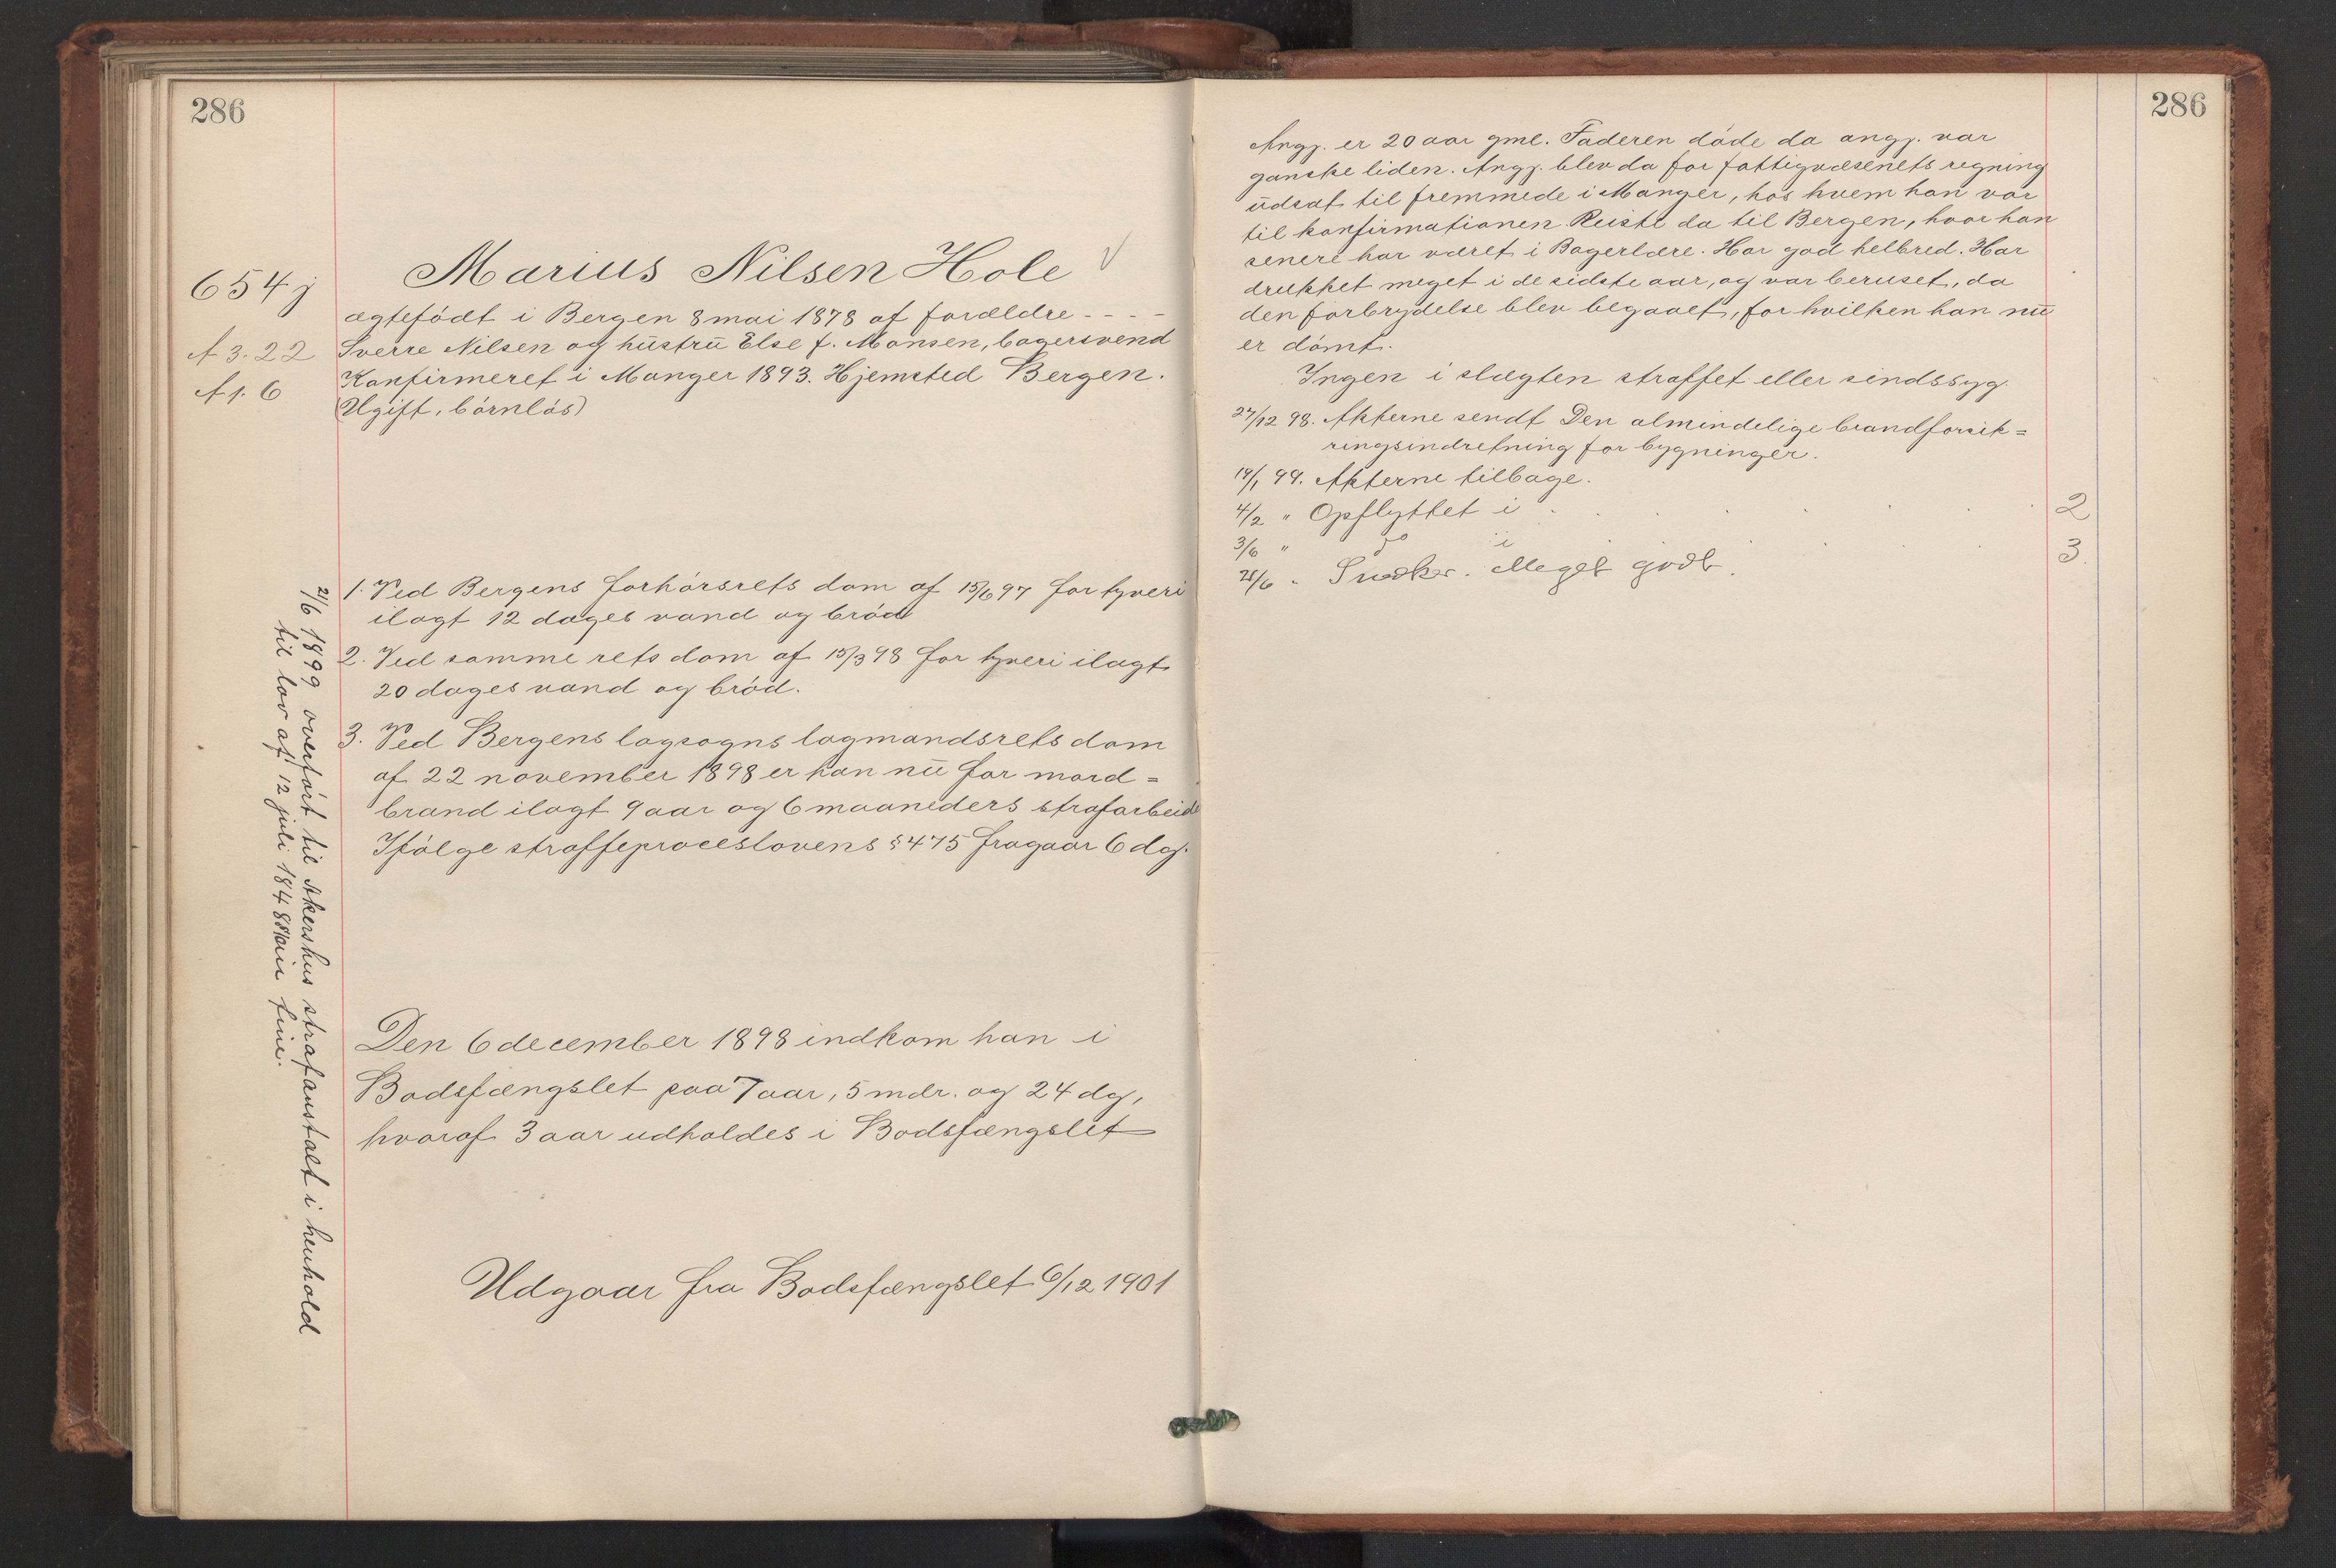 286
654 j
A 3. 22
A 1. 6
Marius Nilsen Hole
ægtefödt i Bergen 8 mai 1878 af forældre - - - -
Sverre Nilsen og hustru Else f. Monsen, bagersvend
Konfirmeret i Manger 1893. Hjemsted Bergen.
(Ugift, börnlös)
1. Ved Bergens forhörsrets dom af 15/6 97 for tyveri
ilagt 12 dages vand og bröd
2. Ved samme rets dom af 15/3 98 for tyveri ilagt
20 dages vand og bröd.
3. Ved Bergens lagsogns lagmandsrets dom
af 22 november 1898 er han nu for mord=
brand ilagt 9 aar og 6 maaneders strafarbeide
Ifölge straffeproceslovens § 475 fragaar 6 dg.
Den 6 december 1898 indkom han i
Bodsfængslet paa 7 aar, 5 mdr. og 24 dg,
hvoraf 3 aar udholdes i Bodsfængslet
Udgaar fra Bodsfængslet 6/12 1901
21/6 1899 overfört til Akershus strafanstalt i henhold
til lov af 12 juli 1848 in fine.
286
Angj. er 20 aar gml. Faderen döde da angj. var
ganske liden. Angj. blev da for fattigvæsenets regning
udsat til fremmede i Manger, hos hvem han var
til konfirmationen. Reiste da til Bergen, hvor han
senere har været i Bagerlære. Har god helbred. Har
drukket meget i de sidste aar, og var beruset, da
den forbrydelse blev begaaet, for hvilken han nu
er dömt.
Ingen i slægten straffet eller sindssyg.
27/12 98. Akterne sendt Den almindelige brandforsik=
ringsindretning for bygninger.
19/1 99. Akterne tilbage.
4/2 " Opflyttet i . . . . . . 2
3/6 " do i . . . 3
21/6 " Snedker. Meget godt.